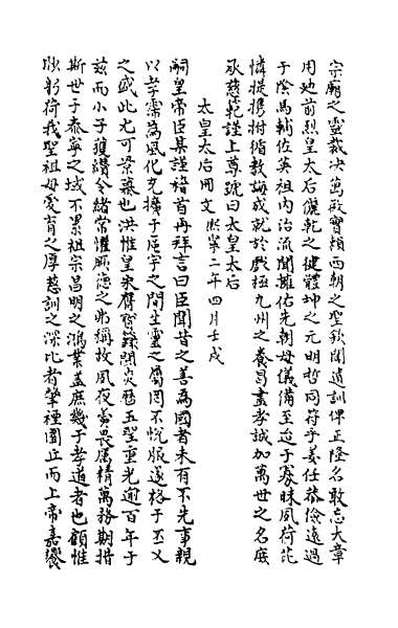 宗廟之靈裁決萬政實賴西朝之聖欽聞遺訓俾正隆名敢忘大章
用迪前烈皇太后儷乾之健體坤之元明哲同符乎姜任恭儉遠過
于陰馬輔佐英祖內治流聞擁佑先朝母儀備至迨于寡昧夙荷芘
憐提攜拊循教誨成就於戲極九州之養曷盡孝誠加萬世之名庶
承慈範謹上尊號曰太皇太后
太皇太后冊文熙寧二年四月壬戌
嗣皇帝臣某謹稽首再拜言曰臣聞昔之善為國者未有不先事親
以孝需為風化充擴于區宇之間生靈之屬罔不悅服遂格于丕乂
之盛此尤可景慕也洪惟皇宋膺籙開炎曆五聖重光逾百年于
茲而小子獲纘令緒常懼厥德之弗稱故夙夜寅畏厲精萬務期措
斯世于泰寧之域不累祖宗昌明之鴻業蓋庶幾于孝道者也顧惟
眇躬荷我聖祖母愛育之厚慈訓之深比者肇禋圜丘而上帝嘉饗